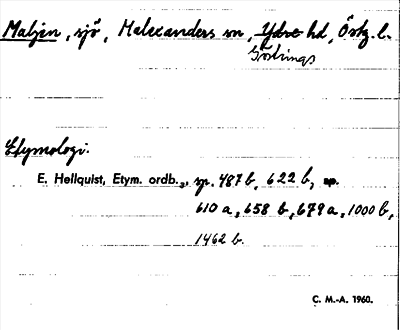 Maljen, sjö, Malexanders sn, Ydre hd, Östg. l.
Göstrings
Etymologi.
E. Hellquist, Etym. ordb., sp. 487 b, 622 b,
610 a, 658 b, 679 a, 1000 b,
1462 b.
C. M.-A. 1960.